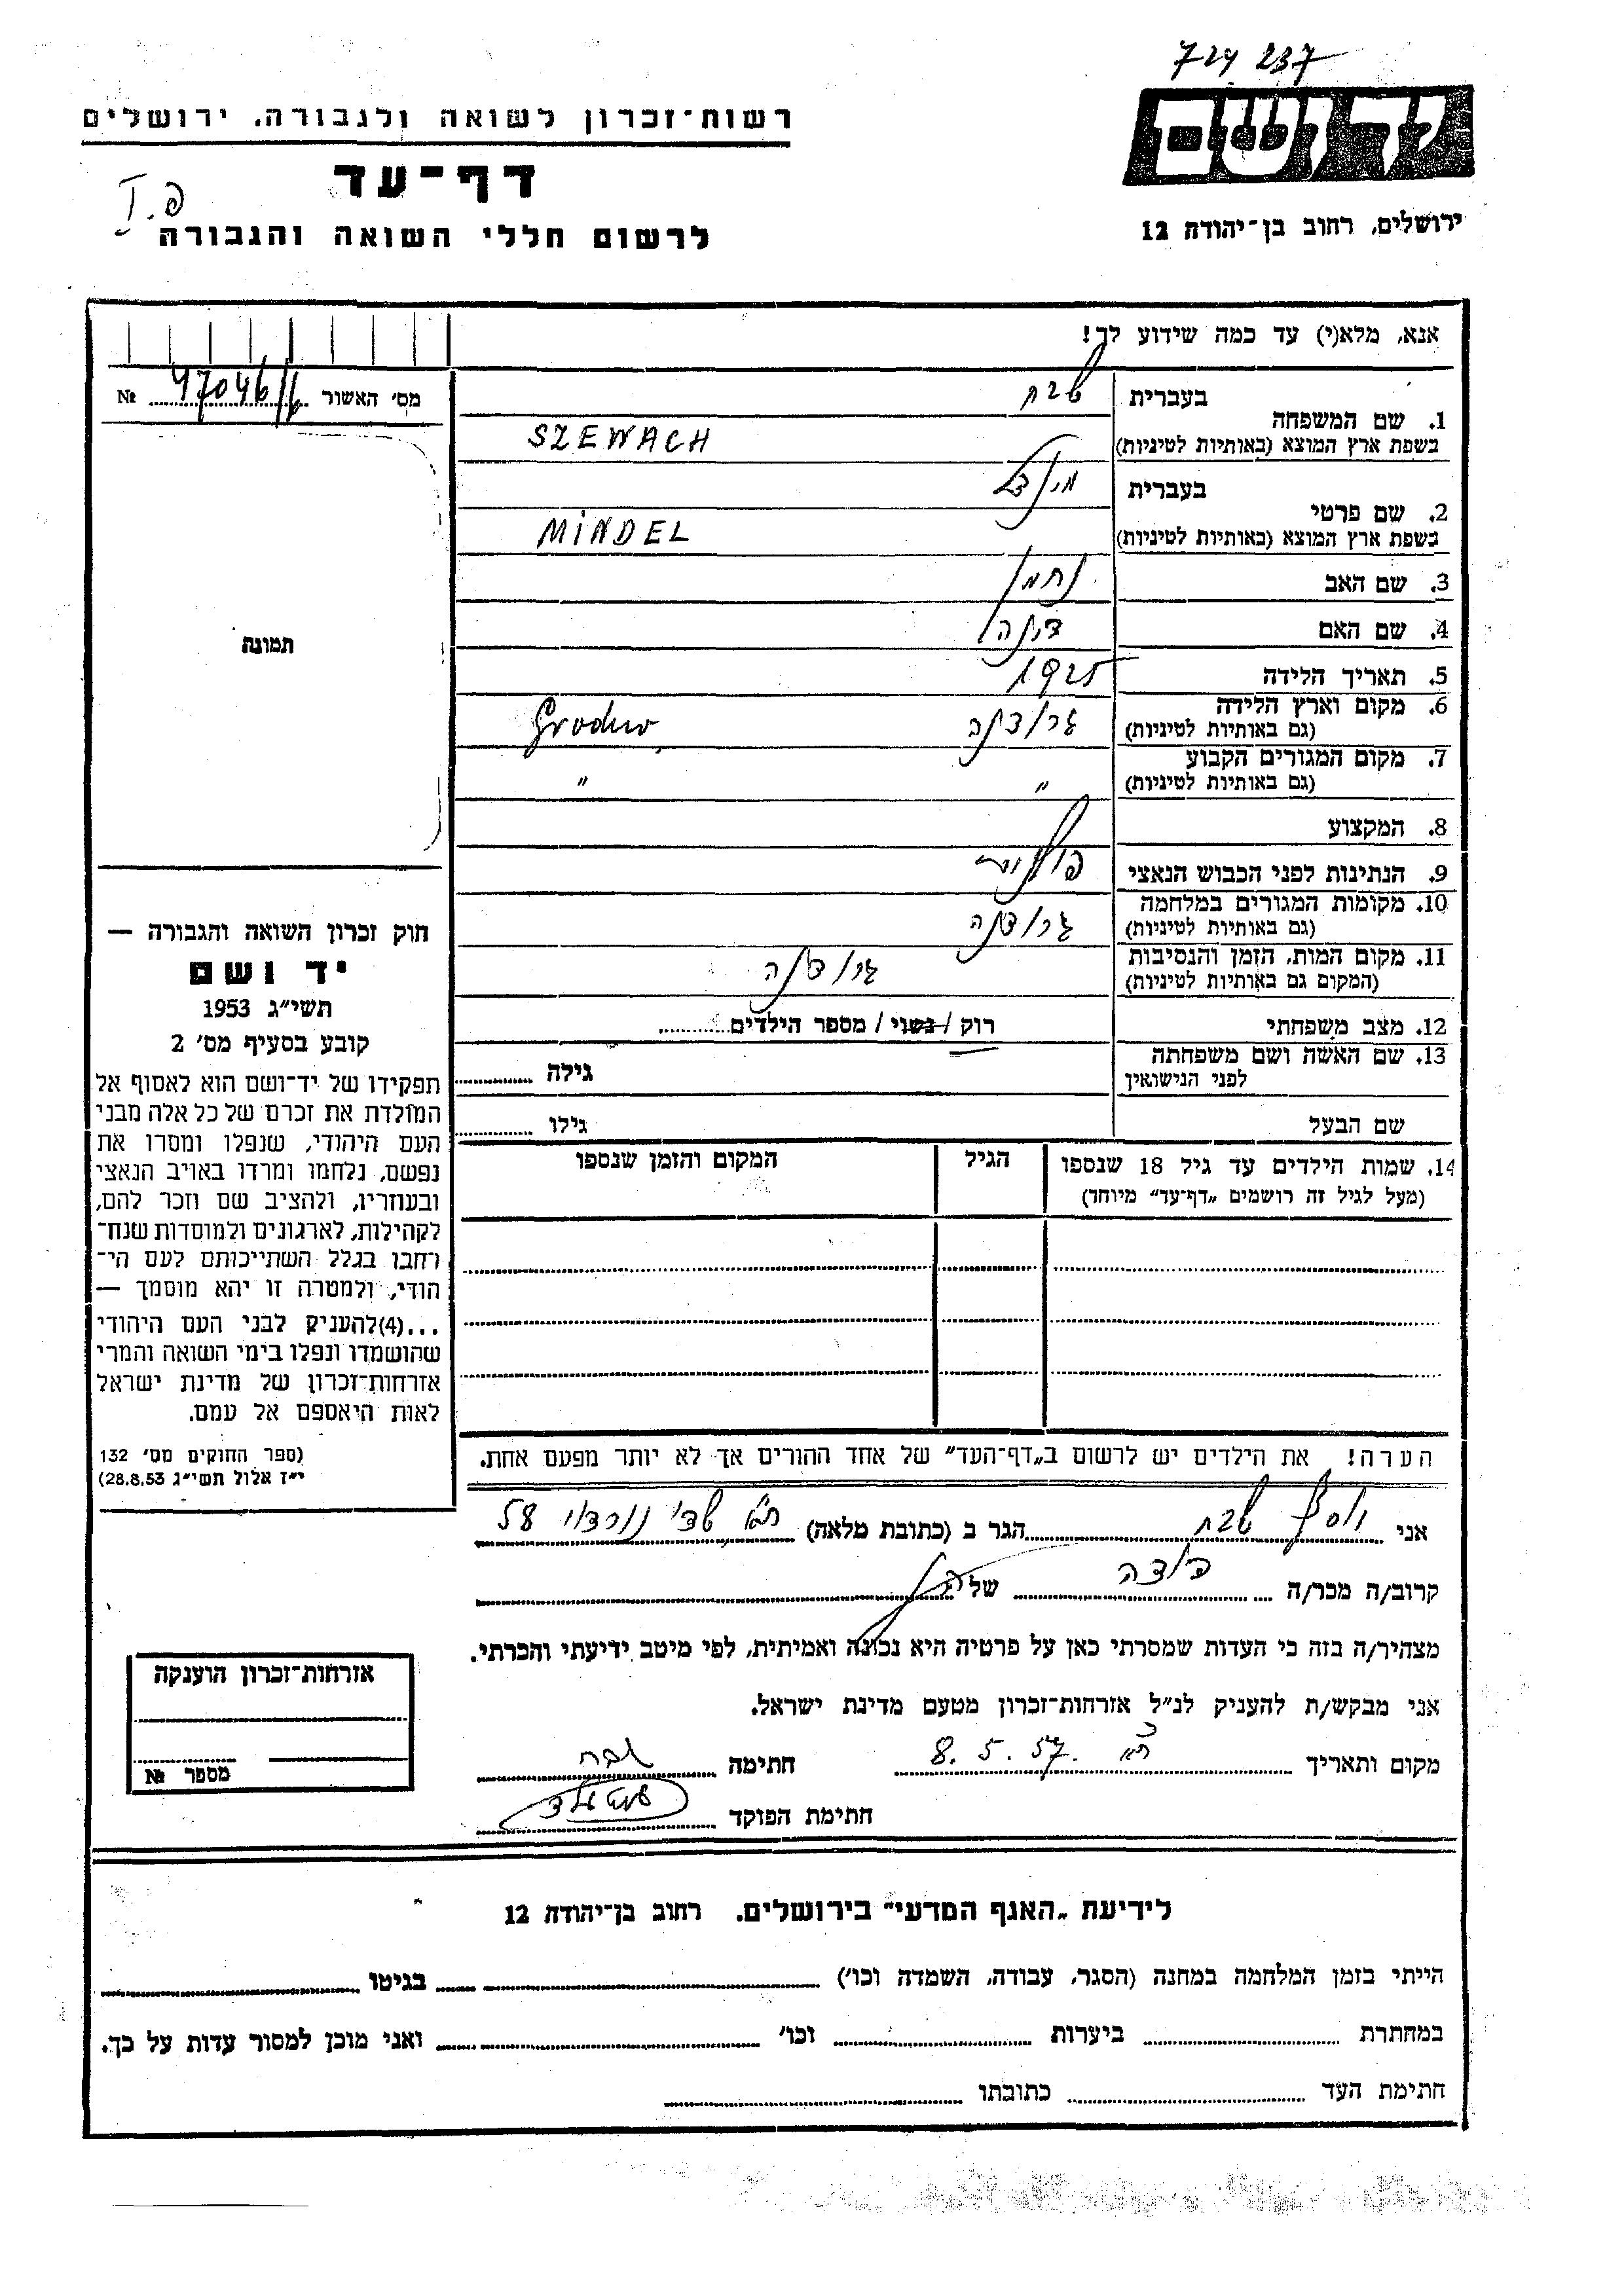 729 237
יד ושם
רשות־זכרון לשואה ולגבורה, ירושלים
דף־עד
לרשום חללי השואה והגבורה
ירושלים, רחוב בן־יהודה 12
אנא, מלא(י) עד כמה שידוע לך!
מס׳ האשור 47046/6 №
1. שם המשפחה בעברית שבח
בשפת ארץ המוצא (באותיות לטיניות) SZEWACH
2. שם פרטי בעברית מינדל
בשפת ארץ המוצא (באותיות לטיניות) MINDEL
3. שם האב נחמן
4. שם האם
5. תאריך הלידה 1925
6. מקום וארץ הלידה (גם באותיות לטיניות) גרודנה Grodno
7. מקום המגורים הקבוע (גם באותיות לטיניות) " "
8. המקצוע
9. הנתינות לפני הכבוש הנאצי
10. מקומות המגורים במלחמה (גם באותיות לטיניות) גרודנה
11. מקום המות, הזמן והנסיבות (המקום גם באותיות לטיניות) גרודנה
12. מצב משפחתי רוק / נשוי / מספר הילדים
13. שם האשה ושם משפחתה לפני הנישואין גילה
שם הבעל גילו
14. שמות הילדים עד גיל 18 שנספו הגיל המקום והזמן שנספו
(מעל לגיל זה רושמים „דף־עד״ מיוחד)
הערה! את הילדים יש לרשום ב„דף־העד״ של אחד ההורים אך לא יותר מפעם אחת.
תמונה
חוק זכרון השואה והגבורה —
יד ושם
תשי״ג 1953
קובע בסעיף מס׳ 2
תפקידו של יד־ושם הוא לאסוף אל
המולדת את זכרם של כל אלה מבני
העם היהודי, שנפלו ומסרו את
נפשם, נלחמו ומרדו באויב הנאצי
ובעוזריו, ולהציב שם וזכר להם,
לקהילות, לארגונים ולמוסדות שנח־
רחבו בגלל השתייכותם לעם הי־
הודי, ולמטרה זו יהא מוסמך —
...(4)להעניק לבני העם היהודי
שהושמדו ונפלו בימי השואה והמרי
אזרחות־זכרון של מדינת ישראל
לאות היאספם אל עמם.
(ספר החוקים מס׳ 132
י״ז אלול תשי״ג 28.8.53)
אני יוסף שבח הגר ב (כתובת מלאה) ת״א שד׳ נורדוי 58
קרוב/ה מכר/ה של
מצהיר/ה בזה כי העדות שמסרתי כאן על פרטיה היא נכונה ואמיתית, לפי מיטב ידיעתי והכרתי.
אני מבקש/ת להעניק לנ״ל אזרחות־זכרון מטעם מדינת ישראל.
מקום ותאריך ת״א 8.5.57 חתימה שבח
חתימת הפוקד
אזרחות־זכרון הוענקה
מספר №
לידיעת „האגף המדעי״ בירושלים. רחוב בן־יהודה 12
הייתי בזמן המלחמה במחנה (הסגר, עבודה, השמדה וכו׳) בגיטו
במחתרת ביערות וכו׳ ואני מוכן למסור עדות על כך.
חתימת העד כתובתו